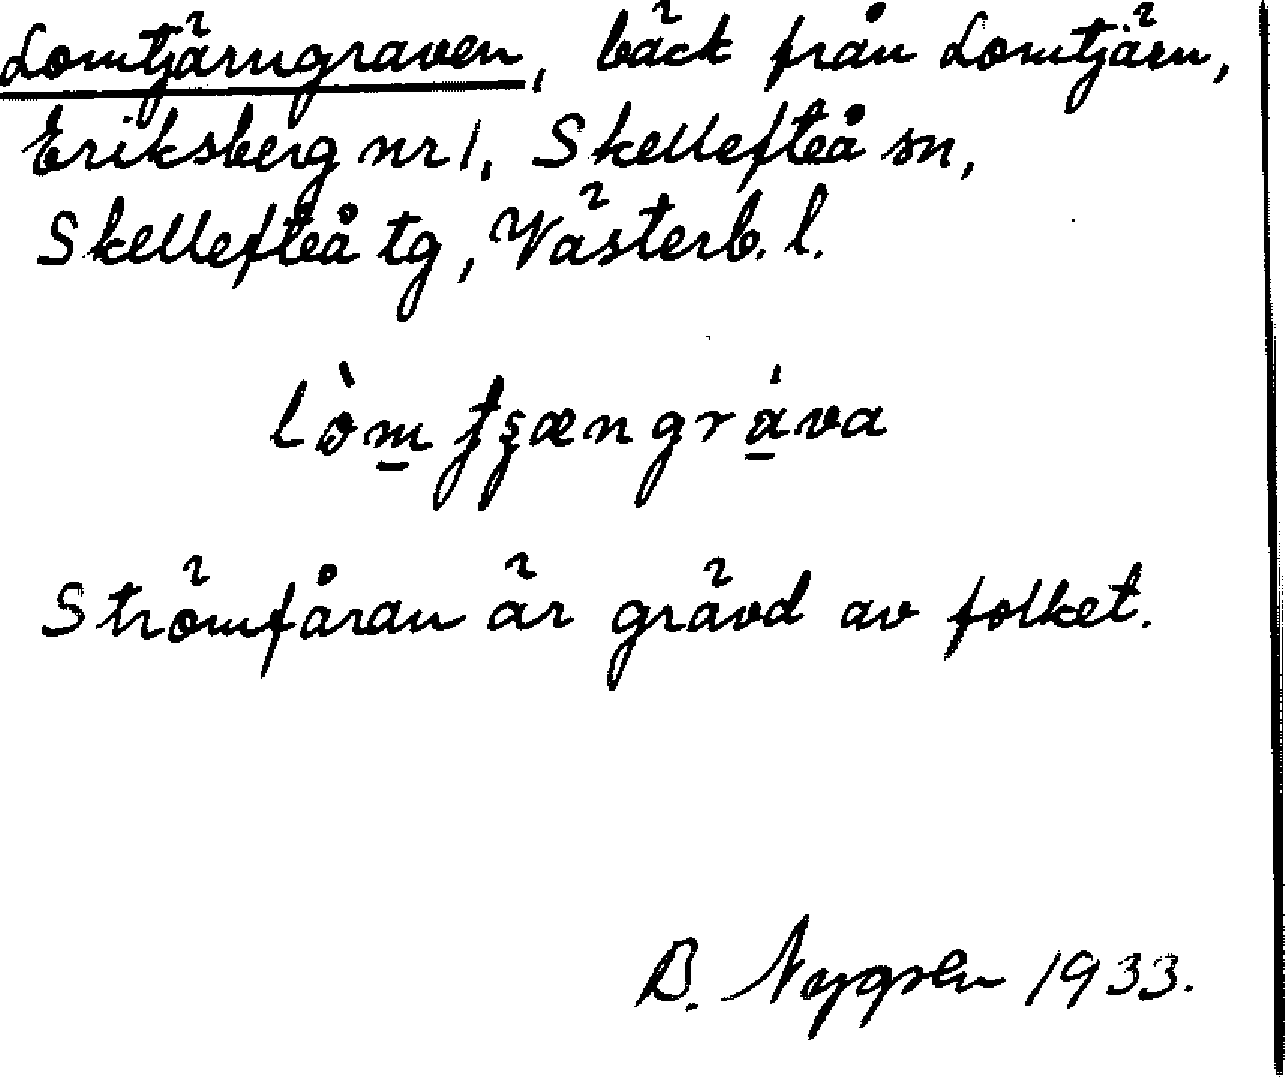 Lomtjärngraven, bäck från Lomtjärn,
Eriksberg nr 1, Skellefteå sn,
Skellefteå tg, Västerb. l.
Strömfåran är grävd av folket.
B. Nygren 1933.